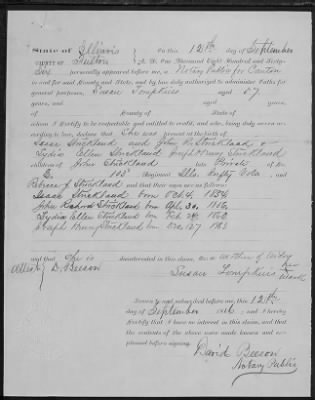 State of Illinois On this 12th day of September
County of Fulton A. D. One Thousand Eight Hundred and Sixty-
Six personally appeared before me, a Notary Public for Canton
in and for said County and State, and by law duly authorized to administer Oaths for
general purposes, Susan Tompkins aged 57
years, and aged
years, of
County of State of
whom I Certify to be respectable and entitled to credit, and who, being duly sworn according
to law, declare that She was present at the birth of
Isaac Strickland and John R. Strickland &
Lydia Ellen Strickland Joseph Henry Strickland
children of John Strickland late Private of Co.
G. 103 Regiment Ills. Infty Vols. and
Rebecca J. Strickland and that their ages are as follows:
Isaac Strickland born Oct 4, 1854,
John Strickland born Apl. 30, 1856,
Lydia Ellen Strickland born Feb 24, 1862
Joseph Henry Strickland born 27 1863
and that She is disinterested in this claim. Mother of Widow
Attest D. Beeson
Susan Tompkins her mark
Sworn to and subscribed before me, this 12th
day of September 1866, and I hereby
Certify that I have no interest in this claim, and that
the contents of the above were made known and explained
before signing.
David Beeson
Notary Public